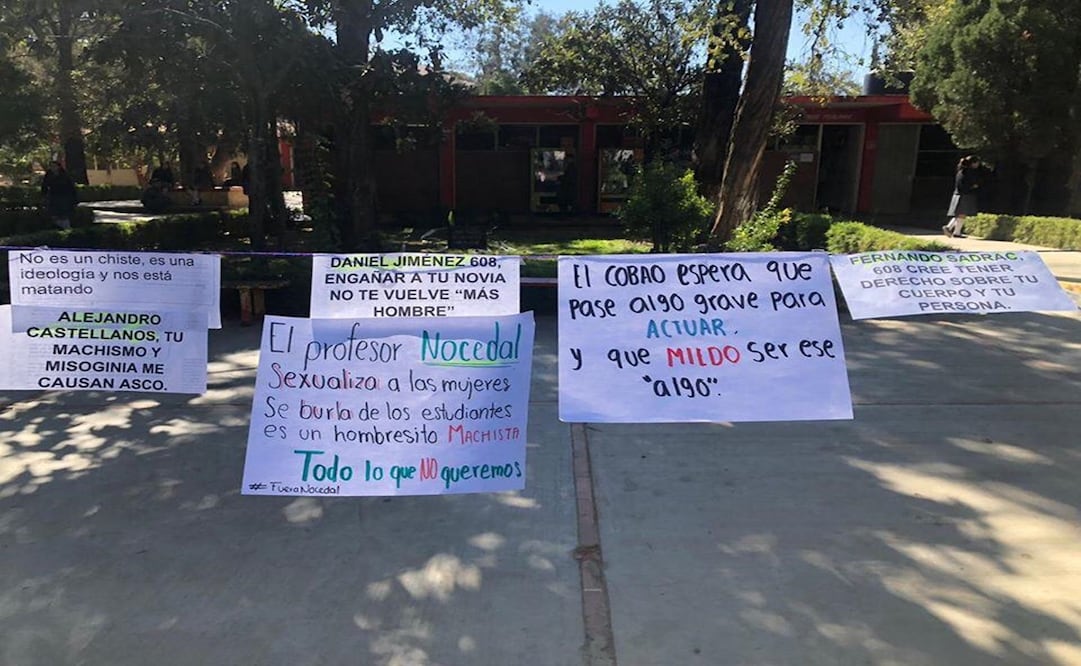 No es un chiste, es una
ideología y nos está
matando
ALEJANDRO
CASTELLANOS, TU
MACHISMO Y
MISOGINIA ME
CAUSAN ASCO.
DANIEL JIMÉNEZ 608,
ENGAÑAR A TU NOVIA
NO TE VUELVE “MÁS
HOMBRE”
El profesor Nocedal
Sexualiza a las mujeres
Se burla de los estudiantes
es un hombresito MACHISTA
Todo lo que NO queremos
#FueraNocedal
El COBAO espera que
pase algo grave para
ACTUAR.
y que MIEDO ser ese
"algo".
FERNANDO SADRAC,
608 CREE TENER
DERECHO SOBRE TU
CUERPO Y TU
PERSONA.